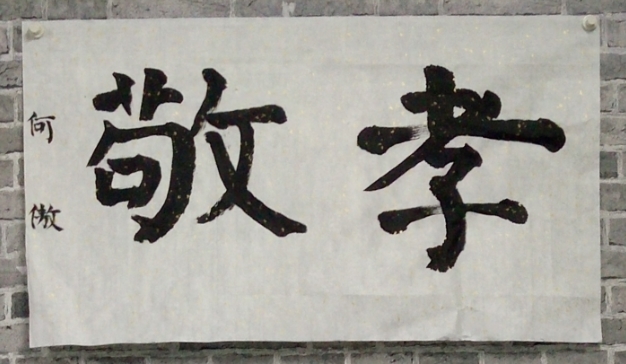 孝敬
何傲